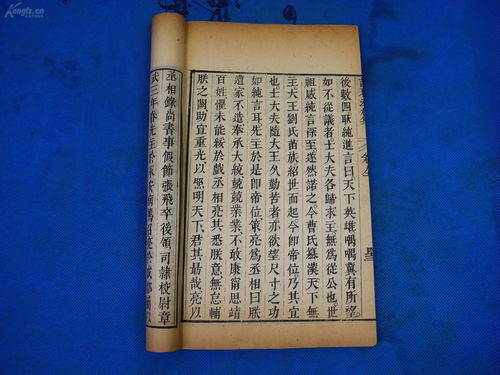 後數四耿純進言曰天下英雄喁喁冀有所望
如不從議者士大夫各歸求主無爲從公也世
祖感純言深至遂然諾之今曹氏篡漢天下無
主大王劉氏苗族紹世而起今卽帝位乃其宜
也士大夫隨大王久勤苦者亦欲望尺寸之功
如純言耳先主於是卽帝位策亮爲丞相曰朕
遭家不造奉承大統兢兢業業不敢康寧思靖
百姓懼未能綏於戲丞相亮其悉朕意無怠輔
朕之闕助宣重光以照明天下君其勗哉亮以
丞相錄尚書事假節張飛卒後領司隸校尉章
武三年春先主於永安病篤召亮於成都屬以
Kongfz.cn